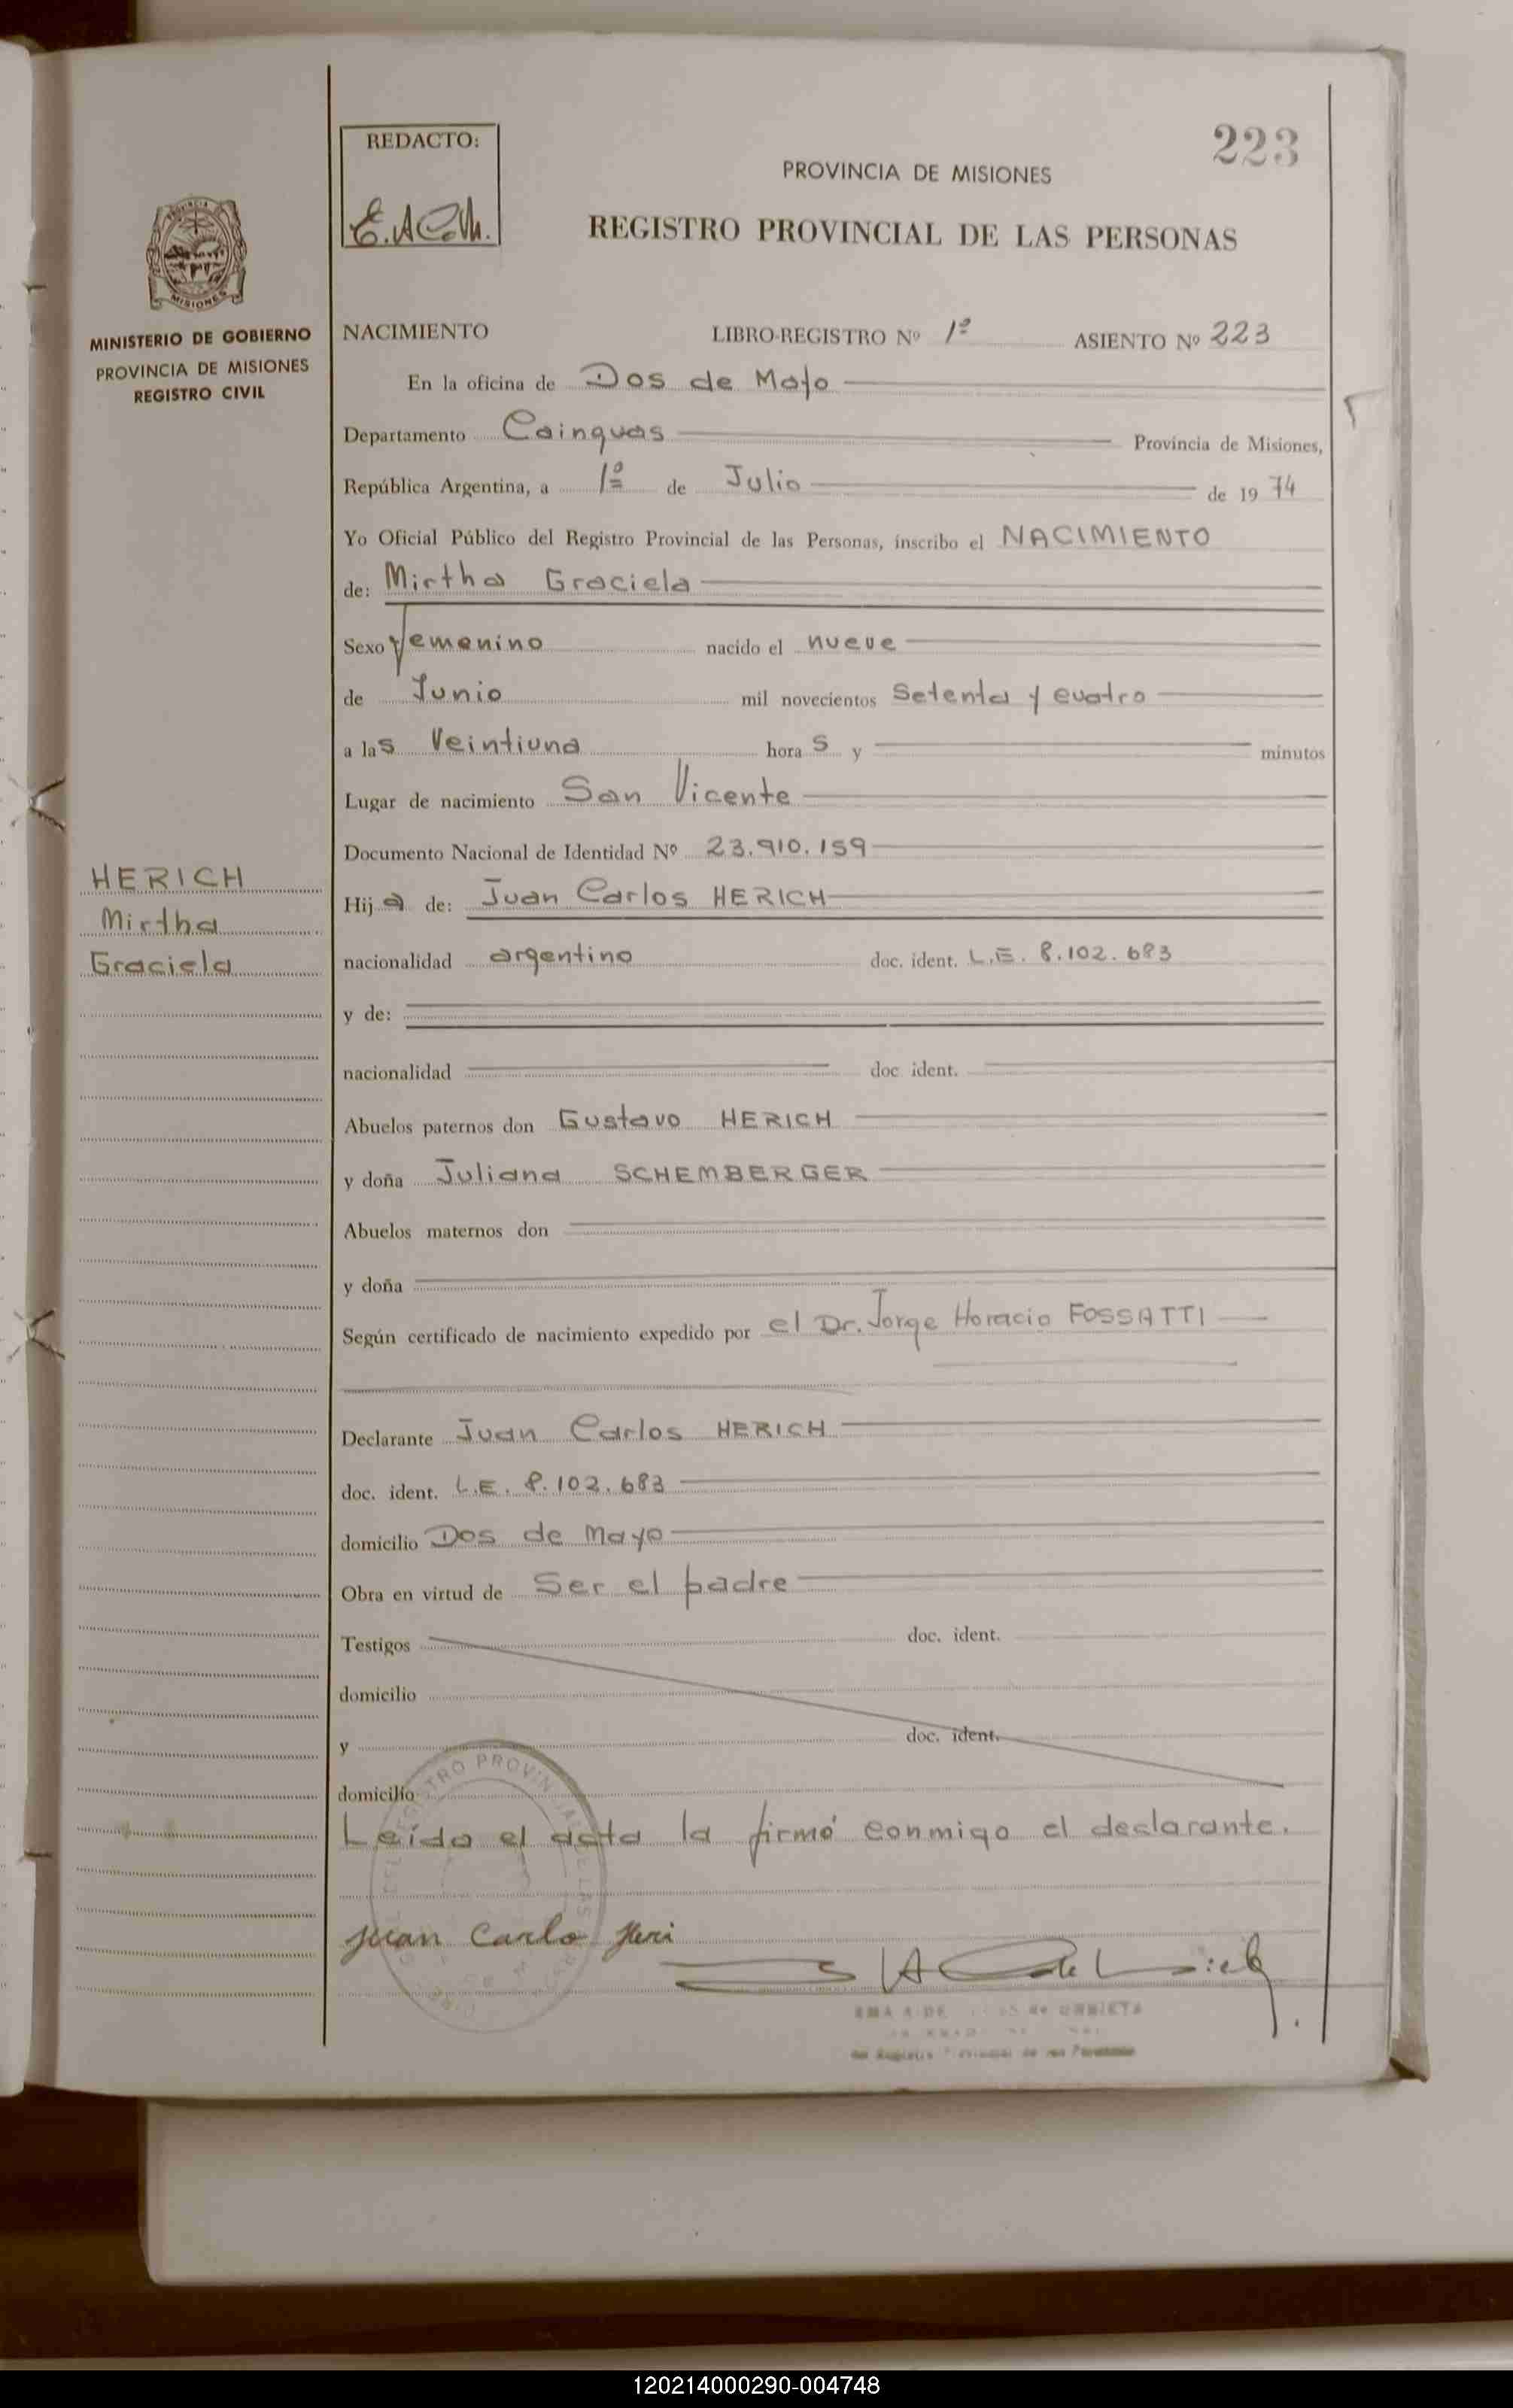 223
REDACTO:
PROVINCIA DE MISIONES
REGISTRO PROVINCIAL DE LAS PERSONAS
MISIONES
MINISTERIO DE GOBIERNO
PROVINCIA DE MISIONES
REGISTRO CIVIL
NACIMIENTO LIBRO-REGISTRO Nº 1º ASIENTO Nº 223
En la oficina de Dos de Mayo
Departamento Cainguas Provincia de Misiones,
República Argentina, a 1º de Julio de 1974
Yo Oficial Público del Registro Provincial de las Personas, inscribo el NACIMIENTO
de: Mirtha Graciela
Sexo femenino nacido el nueve
de Junio mil novecientos Setenta y cuatro
a las Veintiuna horas y minutos
Lugar de nacimiento San Vicente
Documento Nacional de Identidad Nº 23.910.159
HERICH
Mirtha
Graciela
Hija de: Juan Carlos HERICH
nacionalidad argentino doc. ident. L.E. 8.102.683
y de:
nacionalidad doc ident.
Abuelos paternos don Gustavo HERICH
y doña Juliana SCHEMBERGER
Abuelos maternos don
y doña
Según certificado de nacimiento expedido por el Dr. Jorge Horacio FOSSATTI
Declarante Juan Carlos HERICH
doc. ident. L.E. 8.102.683
domicilio Dos de Mayo
Obra en virtud de Ser el padre
Testigos doc. ident.
domicilio
y doc. ident.
domicilio
Leída el acta la firmó conmigo el declarante.
Juan Carlo Heri
120214000290-004748